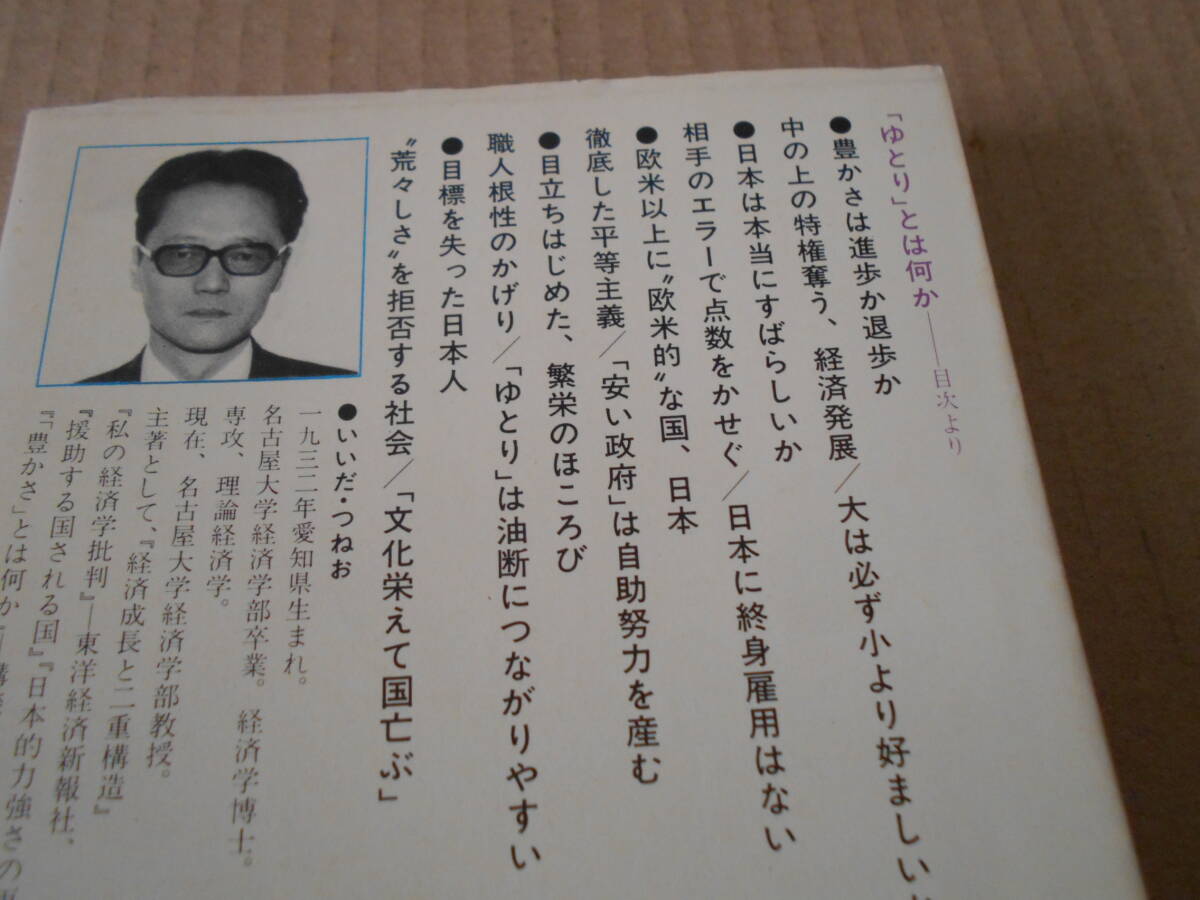 「ゆとり」とは何か——目次より
●豊かさは進歩か退歩か
中の上の特権奪う、経済発展/大は必ず小より好ましい
●日本は本当にすばらしいか
相手のエラーで点数をかせぐ/日本に終身雇用はない
●欧米以上に〝欧米的〟な国、日本
徹底した平等主義/「安い政府」は自助努力を産む
●目立ちはじめた、繁栄のほころび
職人根性のかげり/「ゆとり」は油断につながりやすい
●目標を失った日本人
〝荒々しさ〟を拒否する社会/「文化栄えて国亡ぶ」
●いいだ・つねお
一九三二年愛知県生まれ。
名古屋大学経済学部卒業。経済学博士。
専攻、理論経済学。
現在、名古屋大学経済学部教授。
主著として、『経済成長と二重構造』
『私の経済学批判』—東洋経済新報社、
『援助する国される国』『日本的力強さの
『「豊かさ」とは何か』